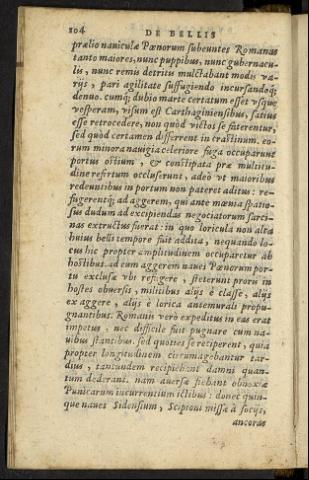 104 DE BELLIS
prælio naviculæ Pœnorum subeuntes Romanas
tanto maiores, nunc puppibus, nunc gubernacu-
lis, nunc remis detritis mulctabant modis va-
rijs, pari agilitate suffugiendo incursandoq;
denuo. cumq; dubio marte certatum esset vsque
vesperam, visum est Carthaginiensibus, satius
esse retrocedere, non quòd victos se faterentur,
sed quòd certamen differrent in crastinum. eo-
rum minora nauigia celeriore fuga occuparunt
portus ostium, & constipata præ multitu-
dine refertum occluserunt, adeò vt maioribus
redeuntibus in portum non pateret aditus: re-
fugerentq; ad aggerem, qui ante mœnia spatio-
sus dudum ad excipiendas negociatorum sarci-
nas extructus fuerat: in quo loricula non alta
huius belli tempore fuit addita, nequando lo-
cus hic propter amplitudinem occuparetur ab
hostibus. ad eum aggerem naues Pœnorum por-
tu exclusæ vbi refugere, steterunt proris in
hostes obuersis, militibus alijs è classe, alijs
ex aggere, alijs è lorica antemurali propu-
gnantibus. Romanis verò expeditus in eas erat
impetus, nec difficile fuit pugnare cum na-
uibus stantibus. sed quoties se reciperent, quia
propter longitudinem circumagebantur tar-
dius, tantundem recipiebant damni quan-
tum dederant. nam auersæ fiebant obnoxiæ
Punicarum incurrentium ictibus: donec quin-
que naues Sidensium, Scipioni missæ à socijs,
ancoras